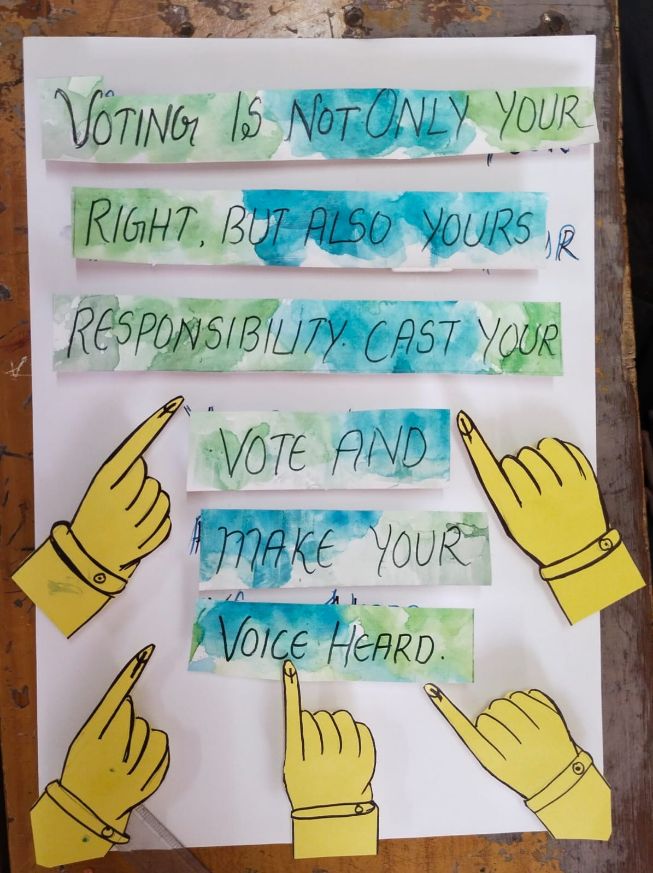 VOTING IS NOT ONLY YOUR
RIGHT, BUT ALSO YOURS
RESPONSIBILITY. CAST YOUR
VOTE AND
MAKE YOUR
VOICE HEARD.